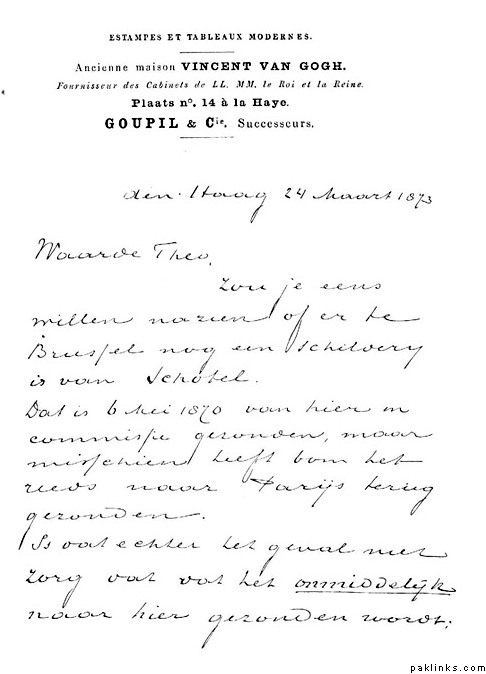 ESTAMPES ET TABLEAUX MODERNES.
Ancienne maison VINCENT VAN GOGH.
Fournisseur des Cabinets de LL. MM. le Roi et la Reine.
Plaats nº. 14 à la Haye.
GOUPIL & Cie. Successeurs.
den Haag 24 Maart 1873
Waarde Theo,
Zou je eens
willen nazien of er te
Brussel nog een schildery
is van Schotel.
Dat is 6 Mei 1870 van hier in
commissie gezonden, maar
misschien heeft bom het
reeds naar Parijs terug
gezonden.
Is dat echter het geval niet
zorg dat dat het onmiddelijk
naar hier gezonden wordt.
paklinks.com